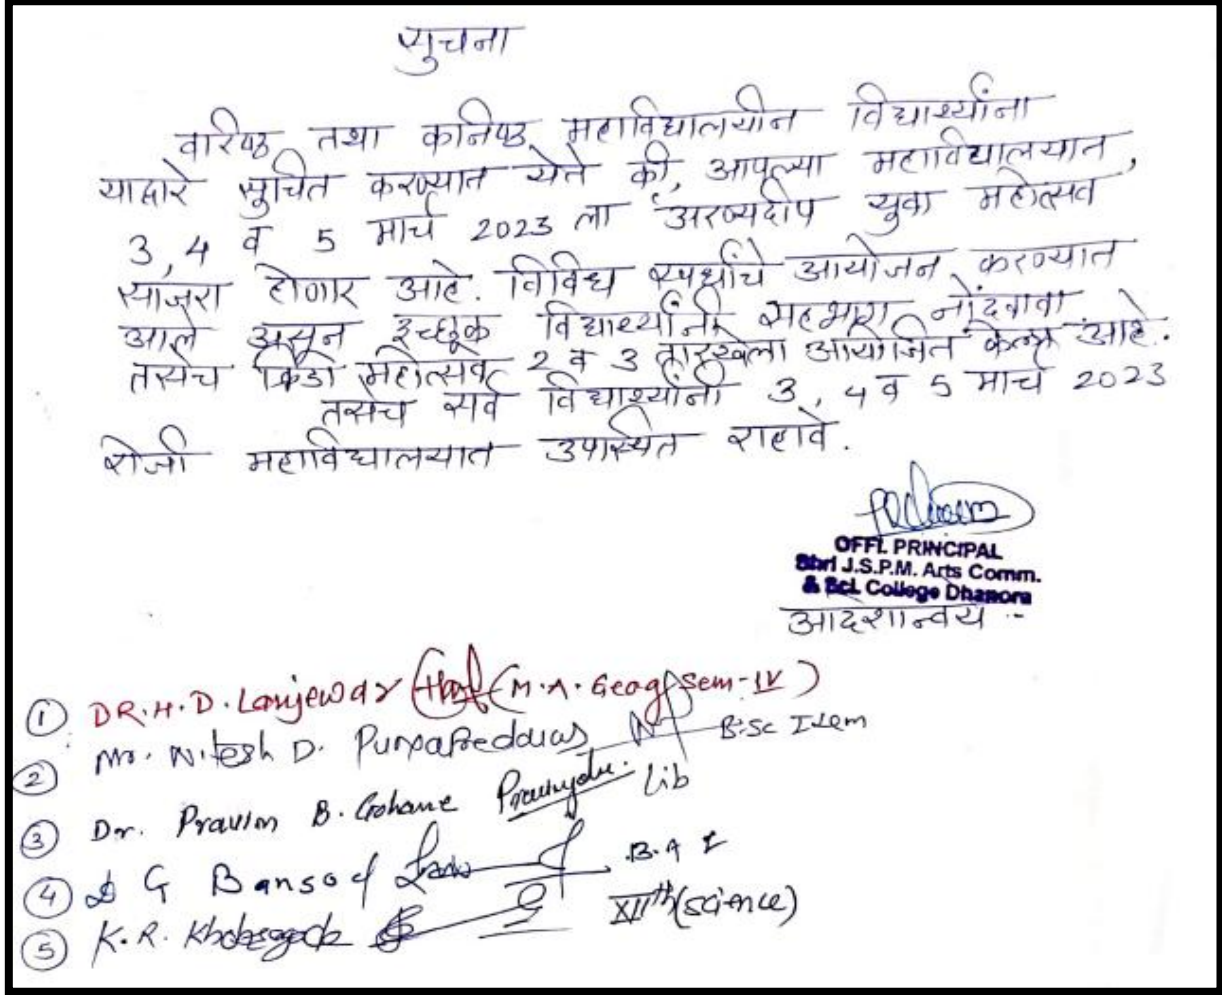 सुचना
वरिष्ठ तथा कनिष्ठ महाविद्यालयीन विद्यार्थ्यांना
याद्वारे सुचित करण्यात येते की, आपल्या महाविद्यालयात,
3, 4 व 5 मार्च 2023 ला अरण्यदीप युवा महोत्सव
साजरा होणार आहे. विविध स्पर्धांचे आयोजन करण्यात
आले असून इच्छूक विद्यार्थ्यांनी सहभाग नोंदवावा
तसेच क्रिडा महोत्सव 2 व 3 तारखेला आयोजित केला आहे.
तसेच सर्व विद्यार्थ्यांनी 3, 4 व 5 मार्च 2023
रोजी महाविद्यालयात उपस्थित राहावे.
OFFI. PRINCIPAL
Shri J.S.P.M. Arts Comm.
& Sci. College Dhanora
आदेशान्वये :-
① DR. H. D. Lanjewar (M.A. Geog Sem-IV)
② Mr. Nitesh D. B.Sc I sem
③ Dr. Pravin B. Gohane Lib
④ D G Bansod B.A I
⑤ K. R. XIIth (science)